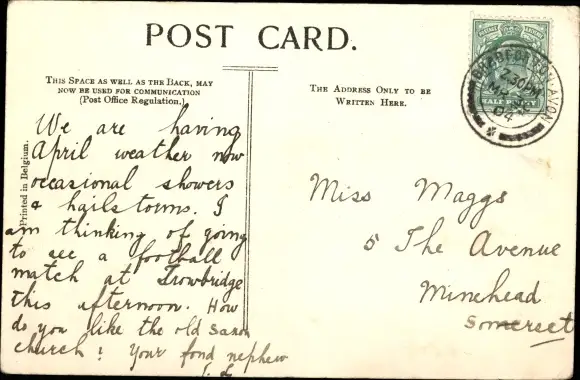 POST CARD.
THIS SPACE AS WELL AS THE BACK, MAY
NOW BE USED FOR COMMUNICATION
(Post Office Regulation.)
THE ADDRESS ONLY TO BE
WRITTEN HERE.
Printed in Belgium.
We are having
April weather now
occasional showers
& hailstorms. I
am thinking of going
to see a football
match at Trowbridge
this afternoon. How
do you like the old Saxon
church? Your fond nephew
Miss Maggs
5 The Avenue
Minehead
Somerset
BRADFORD-ON-AVON
2.30PM
04